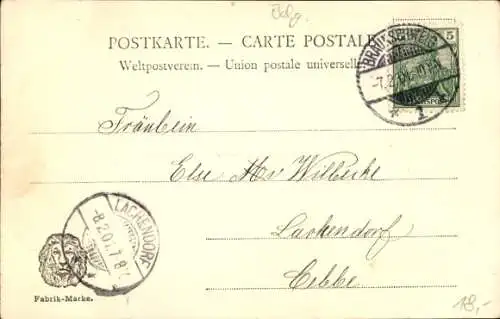 Belg.
POSTKARTE. — CARTE POSTALE
Weltpostverein. — Union postale universelle
BRAUNSCHWEIG
-7.2.01.
* 1
5
Fräulein
Else
Lachendorf
LACHENDORF
-8.2.01.7-8V.
Fabrik-Marke.
18,-